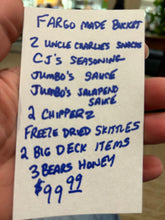 FARGO MADE BUCKET
2 UNCLE CHARLIES SNACKS
CJ'S SEASONING
JUMBO'S SAUCE
JUMBO'S JALAPENO
SAUCE
2 CHIPPERZ
FREEZE DRIED SKITTLES
2 BIG DECK ITEMS
3 BEARS HONEY
$99 99